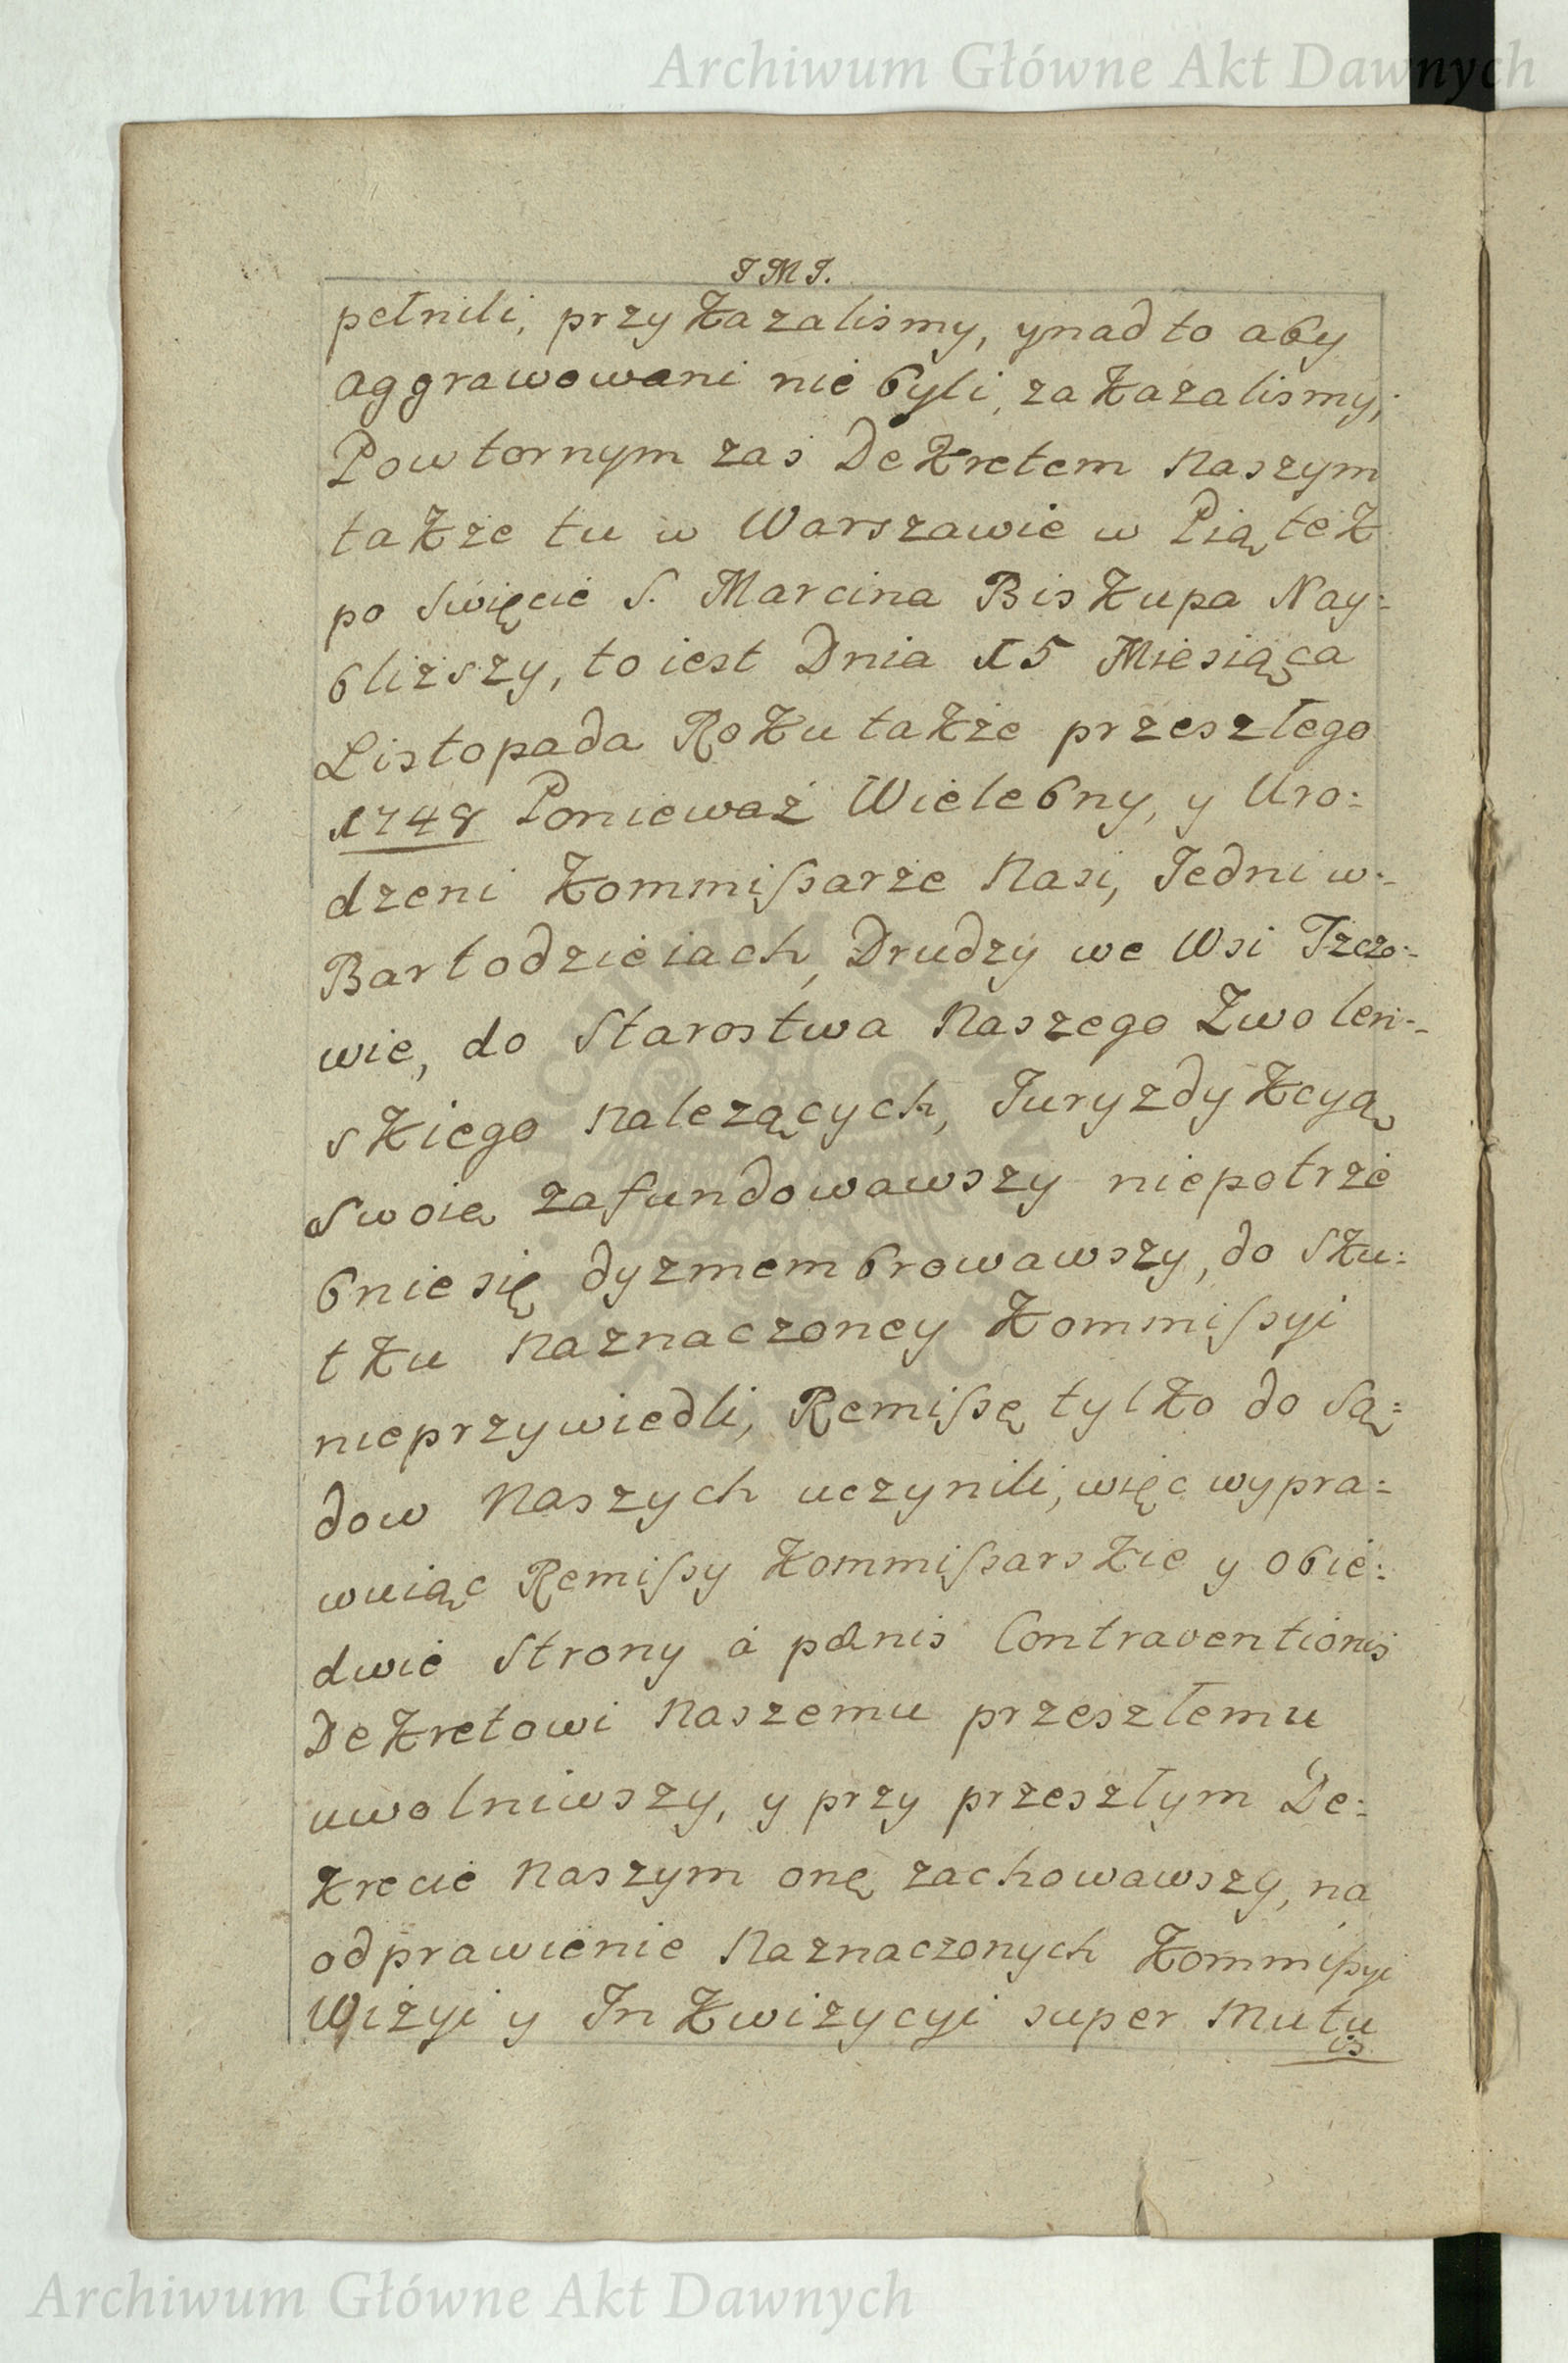 Archiwum Główne Akt Dawnych
JMJ.
pełnili, przykazalismy, ynadto aby
aggrawowani nie byli, zakazalismy;
Powtornym zas Dekretem Naszym
także tu w Warszawie w Piątek
po Swięcie S. Marcina Biskupa Nay=
bliższy, to iest Dnia 15 Miesiąca
Listopada Roku także przeszłego
1748 Ponieważ Wielebny, y Uro=
dzeni Kommissarze Nasi, Jedni w=
Bartodzieiach, Drudzy we Wsi Tczo=
wie, do Starostwa Naszego Zwoleń=
skiego Nalezących, Juryzdykcyą
Swoię zafundowawszy niepotrze
bnie się dyzmembrowawszy, do Sku=
tku Naznaczoney Kommissyi
nieprzywiedli, Remissę tylko do Są=
dow Naszych uczynili, więc wypra=
wuiąc Remissy Kommissarskie y obie=
dwie Strony à pænis Contraventionis
Dekretowi Naszemu przeszłemu
uwolniwszy, y przy przeszłym De=
krecie Naszym onę zachowawszy, na
odprawienie Naznaczonych Kommissyi
Wizyi y Inkwizycyi super Mutu
is
Archiwum Główne Akt Dawnych